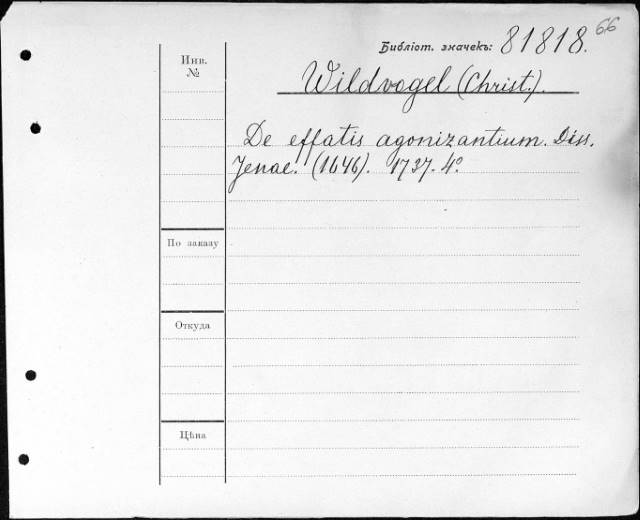 66
Библіот. значекъ: 81818.
Инв. №
Wildvogel (Christ.).
De effatis agonizantium. Diss.
Jenae. (1646). 1737. 4º
По заказу
Откуда
Цѣна